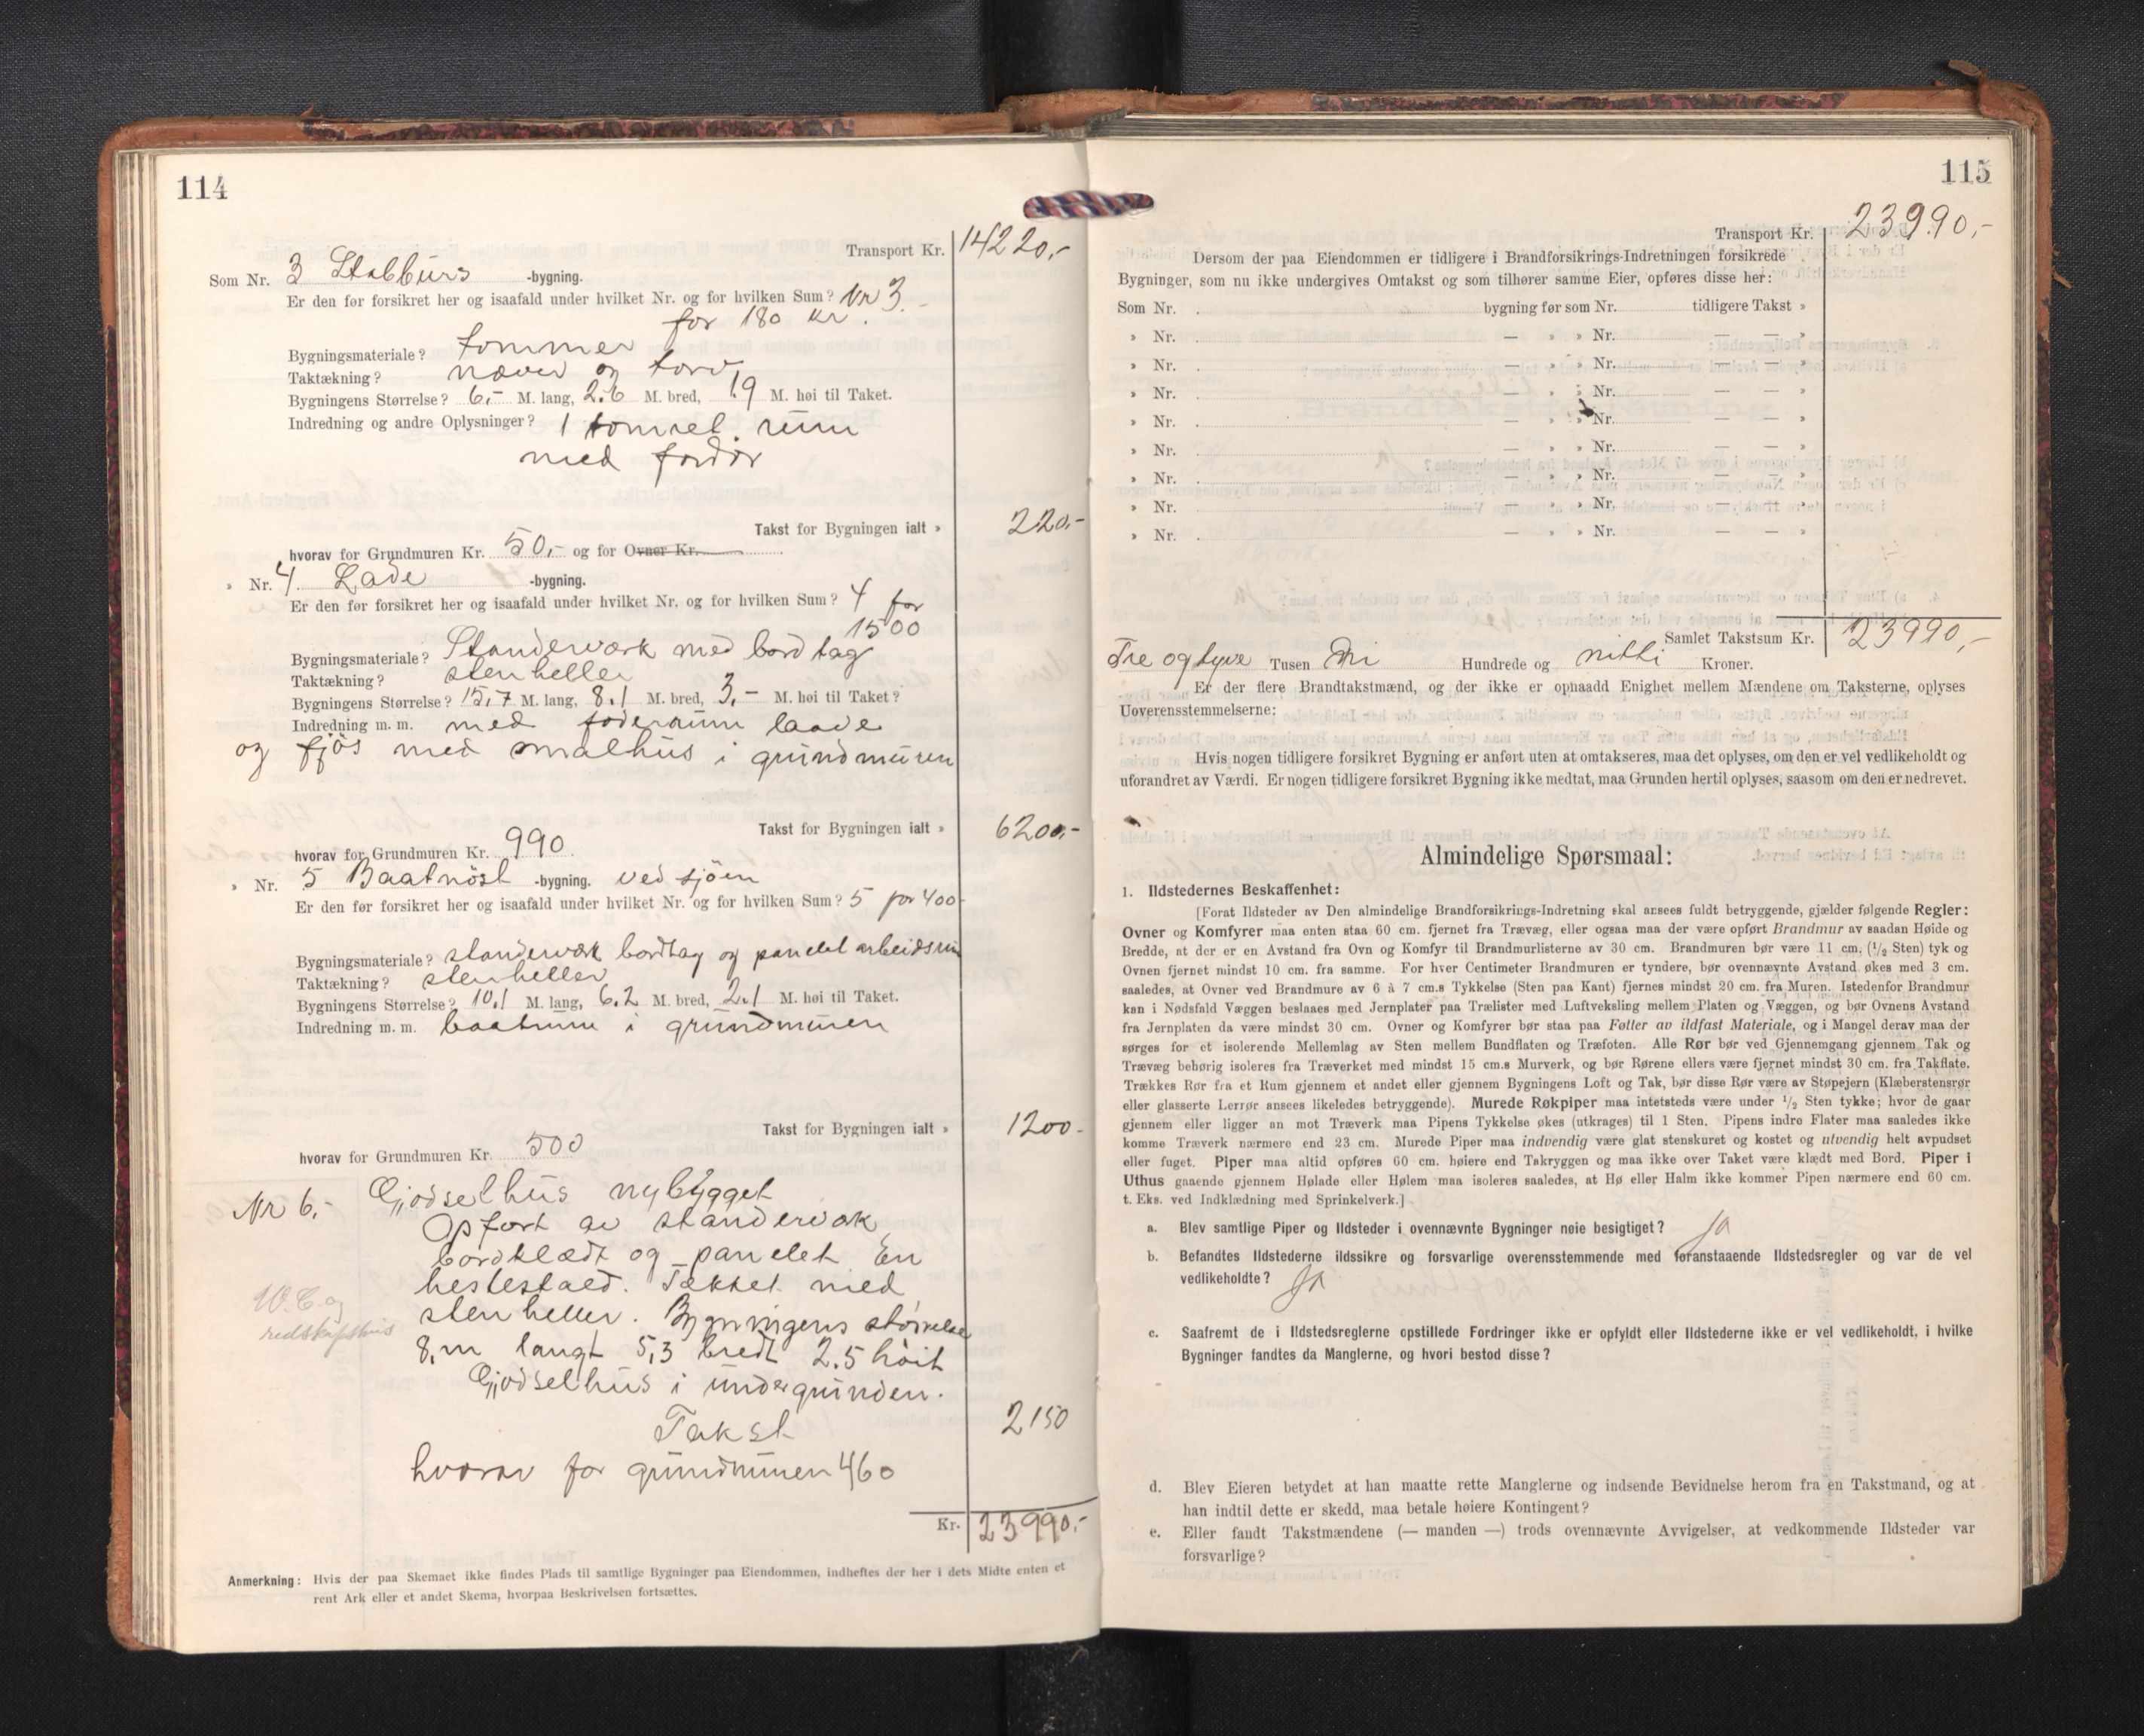 114
Transport Kr. 14220,-
Som Nr. 3 Stabburs -bygning.
Er den før forsikret her og isaafald under hvilket Nr. og for hvilken Sum? Nr 3.
for 180 Kr.
Bygningsmateriale? tømmer
Taktækning? næver og torv
Bygningens Størrelse? 6,- M. lang, 2.6 M. bred, 1.9 M. høi til Taket.
Indredning og andre Oplysninger? 1 tømret rum
med fordør
Takst for Bygningen ialt » 220,-
hvorav for Grundmuren Kr. 50,- og for Ovner Kr.
» Nr. 4. Lade -bygning.
Er den før forsikret her og isaafald under hvilket Nr. og for hvilken Sum? 4 for
1500
Bygningsmateriale? Standerværk med bord tag
Taktækning? stenheller
Bygningens Størrelse? 15,7 M. lang, 8.1 M. bred, 3,- M. høi til Taket?
Indredning m. m. med foderaum laade
og fjøs med smalhus i grundmuren
Takst for Bygningen ialt » 6200,-
hvorav for Grundmuren Kr. 990
» Nr. 5 Baatnöst -bygning. ved sjöen
Er den før forsikret her og isaafald under hvilket Nr. og for hvilken Sum? 5 for 400
Bygningsmateriale? standerværk bordtag og panelet arbeidsrum
Taktækning? stenheller
Bygningens Størrelse? 10,1 M. lang, 6.2 M. bred, 2.1 M. høi til Taket.
Indredning m. m. baatrum i grundmuren
Takst for Bygningen ialt » 1200-
hvorav for Grundmuren Kr. 500
Nr 6,- Gjødselhus nybygget
Opført av standerværk
bordklædt og panelet En
hestestald. Tækket med
W.C. og
stenheller. Bygningens störrelse
redskapshus
8,m langt 5,3 bredt 2.5 høit
Gjødselhus i undergrunden.
Takst 2150
hvorav for grundmuren 460
Kr. 23990,-
Anmerkning: Hvis der paa Skemaet ikke findes Plads til samtlige Bygninger paa Eiendommen, indheftes der her i dets Midte enten et
rent Ark eller et andet Skema, hvorpaa Beskrivelsen fortsættes.
115
Transport Kr. 23990,-
Dersom der paa Eiendommen er tidligere i Brandforsikrings-Indretningen forsikrede
Bygninger, som nu ikke undergives Omtakst og som tilhører samme Eier, opføres disse her:
Som Nr. bygning før som Nr. tidligere Takst »
» Nr. — » » Nr. — — »
» Nr. — » » Nr. — — »
» Nr. — » » Nr. — — »
» Nr. — » » Nr. — — »
» Nr. — » » Nr. — — »
» Nr. — » » Nr. — — »
» Nr. — » » Nr. — — »
» Nr. — » » Nr. — — »
Samlet Takstsum Kr. 23990,-
Tre og tyve Tusen Ni Hundrede og nitti Kroner.
Er der flere Brandtakstmænd, og der ikke er opnaadd Enighet mellem Mændene om Taksterne, oplyses
Uoverensstemmelserne:
Hvis nogen tidligere forsikret Bygning er anført uten at omtakseres, maa det oplyses, om den er vel vedlikeholdt og
uforandret av Værdi. Er nogen tidligere forsikret Bygning ikke medtat, maa Grunden hertil oplyses, saasom om den er nedrevet.
Almindelige Spørsmaal:
1. Ildstedernes Beskaffenhet:
[Forat Ildsteder av Den almindelige Brandforsikrings-Indretning skal ansees fuldt betryggende, gjælder følgende Regler:
Ovner og Komfyrer maa enten staa 60 cm. fjernet fra Trævæg, eller ogsaa maa der være opført Brandmur av saadan Høide og
Bredde, at der er en Avstand fra Ovn og Komfyr til Brandmurlisterne av 30 cm. Brandmuren bør være 11 cm, (1/2 Sten) tyk og
Ovnen fjernet mindst 10 cm. fra samme. For hver Centimeter Brandmuren er tyndere, bør ovennævnte Avstand økes med 3 cm.
saaledes, at Ovner ved Brandmure av 6 à 7 cm.s Tykkelse (Sten paa Kant) fjernes mindst 20 cm. fra Muren. Istedenfor Brandmur
kan i Nødsfald Væggen beslaaes med Jernplater paa Trælister med Luftveksling mellem Platen og Væggen, og bør Ovnens Avstand
fra Jernplaten da være mindst 30 cm. Ovner og Komfyrer bør staa paa Føtter av ildfast Materiale, og i Mangel derav maa der
sørges for et isolerende Mellemlag av Sten mellem Bundflaten og Træfoten. Alle Rør bør ved Gjennemgang gjennem Tak og
Trævæg behørig isoleres fra Træverket med mindst 15 cm.s Murverk, og bør Rørene ellers være fjernet mindst 30 cm. fra Takflate.
Trækkes Rør fra et Rum gjennem et andet eller gjennem Bygningens Loft og Tak, bør disse Rør være av Støpejern (Klæberstensrør
eller glasserte Lerrør ansees likeledes betryggende). Murede Røkpiper maa intetsteds være under 1/2 Sten tykke; hvor de gaar
gjennem eller ligger an mot Træverk maa Pipens Tykkelse økes (utkrages) til 1 Sten. Pipens indre Flater maa saaledes ikke
komme Træverk nærmere end 23 cm. Murede Piper maa indvendig være glat stenskuret og kostet og utvendig helt avpudset
eller fuget. Piper maa altid opføres 60 cm. høiere end Takryggen og maa ikke over Taket være klædt med Bord. Piper i
Uthus gaaende gjennem Hølade eller Hølem maa isoleres saaledes, at Hø eller Halm ikke kommer Pipen nærmere end 60 cm.
t. Eks. ved Indklædning med Sprinkelverk.]
a. Blev samtlige Piper og Ildsteder i ovennævnte Bygninger nøie besigtiget? Ja
b. Befandtes Ildstederne ildssikre og forsvarlige overensstemmende med foranstaaende Ildstedsregler og var de vel
vedlikeholdte? Ja
c. Saafremt de i Ildstedsreglerne opstillede Fordringer ikke er opfyldt eller Ildstederne ikke er vel vedlikeholdt, i hvilke
Bygninger fandtes da Manglerne, og hvori bestod disse?
d. Blev Eieren betydet at han maatte rette Manglerne og indsende Bevidnelse herom fra en Takstmand, og at
han indtil dette er skedd, maa betale høiere Kontingent?
e. Eller fandt Takstmændene (— manden —) trods ovennævnte Avvigelser, at vedkommende Ildsteder var
forsvarlige?